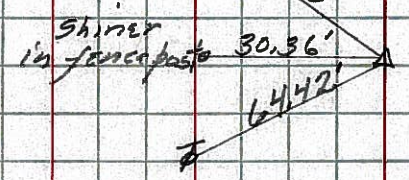 Shiner
in fence post 30.36'
64.42'